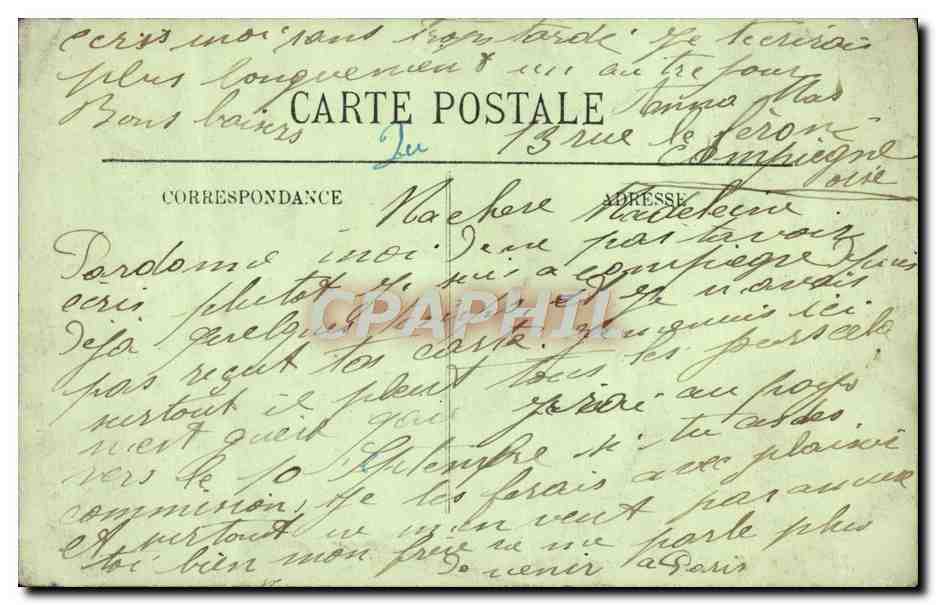 ecris moi sans trop tardé je t'ecrirais
plus longuement un autre jour
Bons baisers
Anna Mas
CARTE POSTALE
13 rue le
Compiegne
oise
CORRESPONDANCE
ADRESSE
Ma chere Madeleine
Pardonne moi de ne pas t'avoir
écris plutot je suis a compiegne depuis
deja quelques jours et je n'avais
pas reçut tes carte. je m'ennuis ici
surtout il pleut tous les jours cela
n'est guert gai j'irai au pays
vers le 10 Septembre si tu as des
commission, je les ferais avec plaisir
Et surtout ne m'en veut pas
toi bien mon frère ne me parle plus
de venir a Paris
CPAPHIL